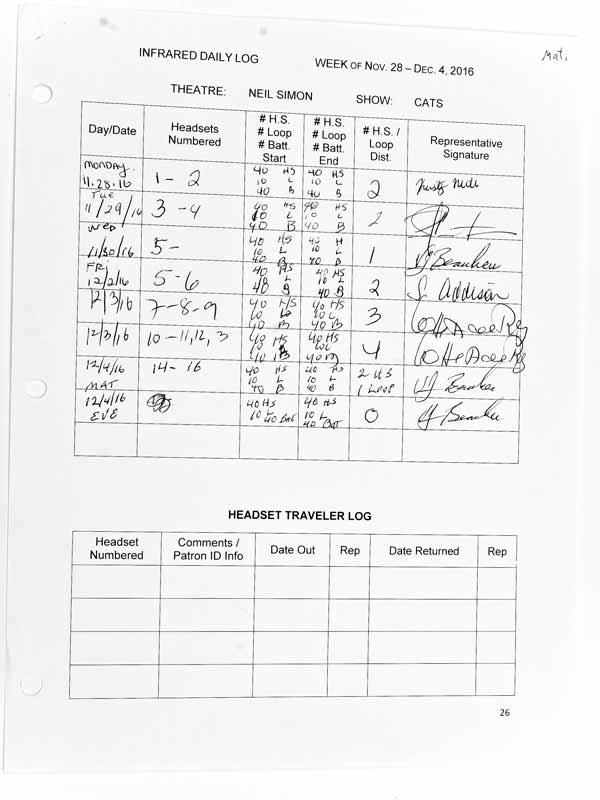 Mat.
INFRARED DAILY LOG WEEK OF NOV. 28 – DEC. 4, 2016
THEATRE: NEIL SIMON SHOW: CATS
Day/Date Headsets Numbered # H.S. # Loop # Batt. Start # H.S. # Loop # Batt. End # H.S. / Loop Dist. Representative Signature
MONDAY 11.28.16 1 - 2 40 HS 10 L 40 B 40 HS 10 L 40 B 2
TUE 11/29/16 3 - 4 40 HS 10 L 40 B 40 HS 10 L 40 B 2
WED 11/30/16 5- 40 HS 10 L 40 B 40 H 10 L 40 B 1 Beaulieu
FRI 12/2/16 5-6 40 HS L 40 B 40 HS 10 L 40 B 2 S Addison
12/3/16 7-8-9 40 H/S 10 L 40 B 40 H/S 10 L 40 B 3
12/3/16 10-11,12,3 40 HS 10 L 40 B 40 HS 10 L 40 B 4
12/4/16 MAT 14-16 40 HS 10 L 40 B 40 HS 10 L 40 B 2 HS 1 Loop Beaulieu
12/4/16 EVE 40 HS 10 L 40 Bat 40 HS 10 L 40 BAT 0 Beaulieu
HEADSET TRAVELER LOG
Headset Numbered Comments / Patron ID Info Date Out Rep Date Returned Rep
26